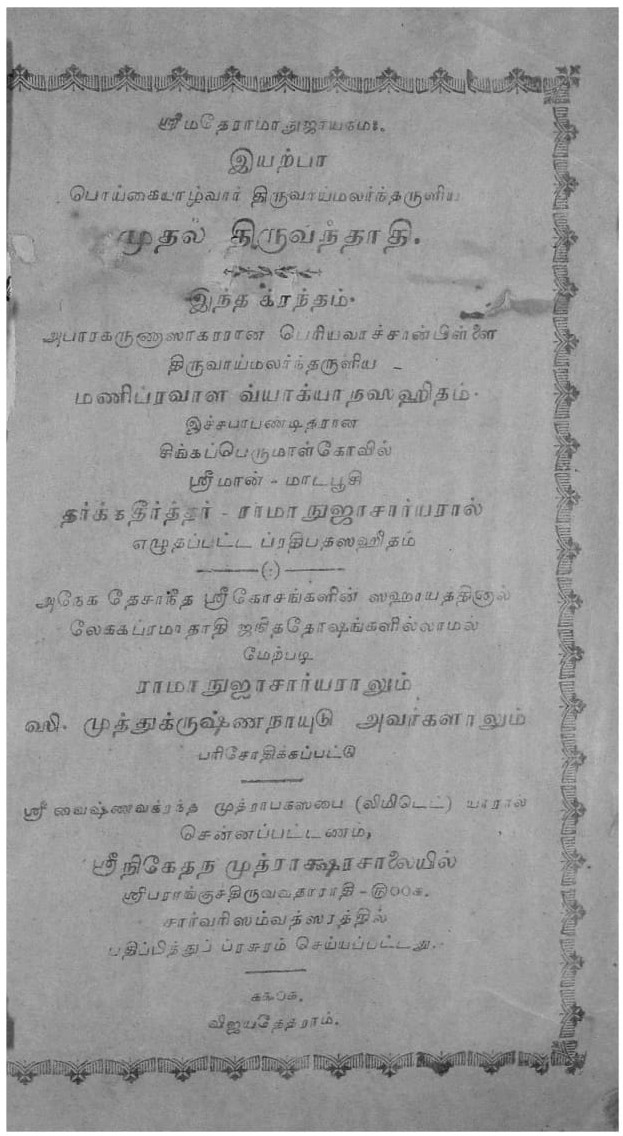 ஸ்ரீமதேராமாநுஜாயநம:.
இயற்பா
பொய்கையாழ்வார் திருவாய்மலர்ந்தருளிய
முதல் திருவந்தாதி.
இந்த க்ரந்தம்.
அபாரகருணாஸாகரரான பெரியவாச்சான்பிள்ளை
திருவாய்மலர்ந்தருளிய -
மணிப்ரவாள வ்யாக்யாநஸஹிதம்.
இச்சபாபண்டிதரான
சிங்கப்பெருமாள்கோவில்
ஸ்ரீமான் - மாடபூசி
தர்க்கதீர்த்தர் - ராமாநுஜாசார்யரால்
எழுதப்பட்ட ப்ரதிபதஸஹீதம்
(:)
அநேக தேசாநீத ஸ்ரீகோசங்களின் ஸஹாயத்தினால்
லேககப்ரமாதாதி ஜநிததோஷங்களில்லாமல்
மேற்படி
ராமாநுஜாசார்யராலும்
முத்துக்ருஷ்ணநாயுடு அவர்களாலும்
பரிசோதிக்கப்பட்டு
ஸ்ரீ வைஷ்ணவக்ரந்த முத்ராபகஸபை (லிமிடெட்) யாரால்
சென்னப்பட்டணம்,
ஸ்ரீநிகேதந முத்ராக்ஷரசாலையில்
சார்வரிஸம்வத்ஸரத்தில்
பதிப்பித்துப் ப்ரசுரம் செய்யப்பட்டது.